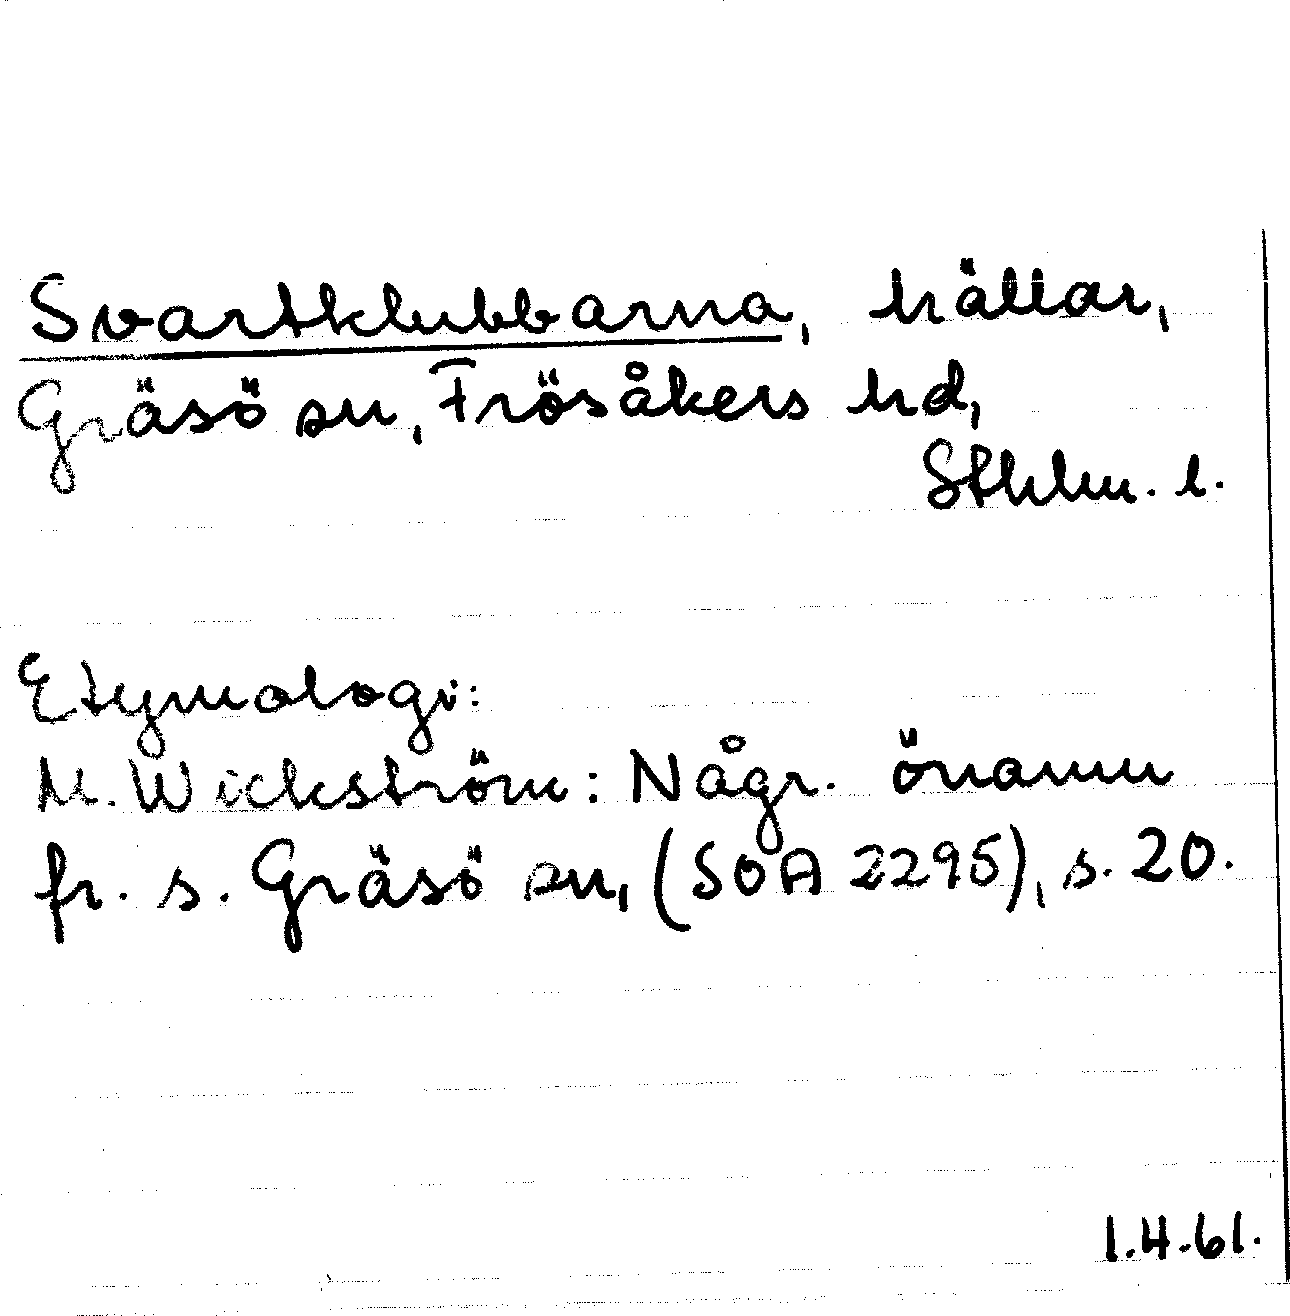 Svartklubbarna, hällar,
Gräsö sn, Frösåkers hd,
Sthlm. l.
Etymologi:
M. Wickström: Någr. önamn
fr. s. Gräsö sn, (SOA 2295), s. 20.
1.4.61.